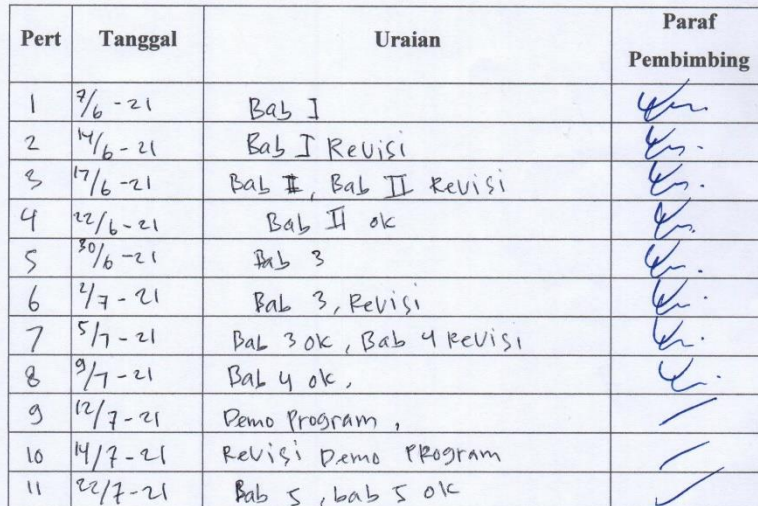 Pert Tanggal Uraian Paraf Pembimbing
1 7/6 - 21 Bab I
2 14/6 - 21 Bab I Revisi
3 17/6 - 21 Bab II, Bab II Revisi
4 22/6 - 21 Bab II ok
5 30/6 - 21 Bab 3
6 2/7 - 21 Bab 3, Revisi
7 5/7 - 21 Bab 3 ok, Bab 4 Revisi
8 9/7 - 21 Bab 4 ok,
9 12/7 - 21 Demo Program,
10 14/7 - 21 Revisi Demo PRogram
11 22/7 - 21 Bab 5, bab 5 ok